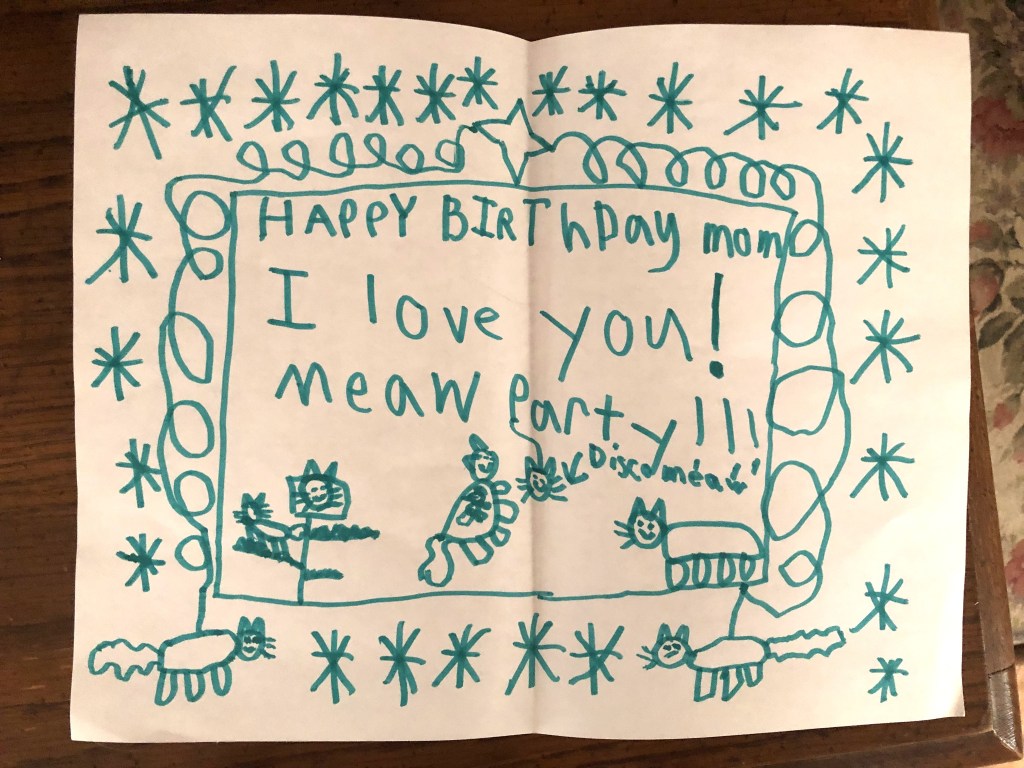 HAPPY BIRThDay mom
I love you!
meaw party!!!
Disco meaw!